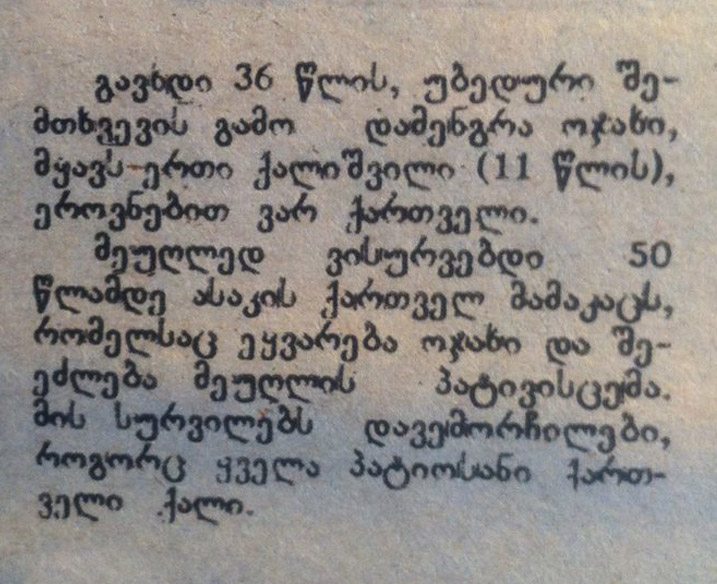 გავხდი 36 წლის, უბედური შე-
მთხვევის გამო დამენგრა ოჯახი,
მყავს ერთი ქალიშვილი (11 წლის),
ეროვნებით ვარ ქართველი.
მეუღლედ ვისურვებდი 50
წლამდე ასაკის ქართველ მამაკაცს,
რომელსაც ეყვარება ოჯახი და შე-
ეძლება მეუღლის პატივისცემა.
მის სურვილებს დავემორჩილები,
როგორც ყველა პატიოსანი ქართ-
ველი ქალი.